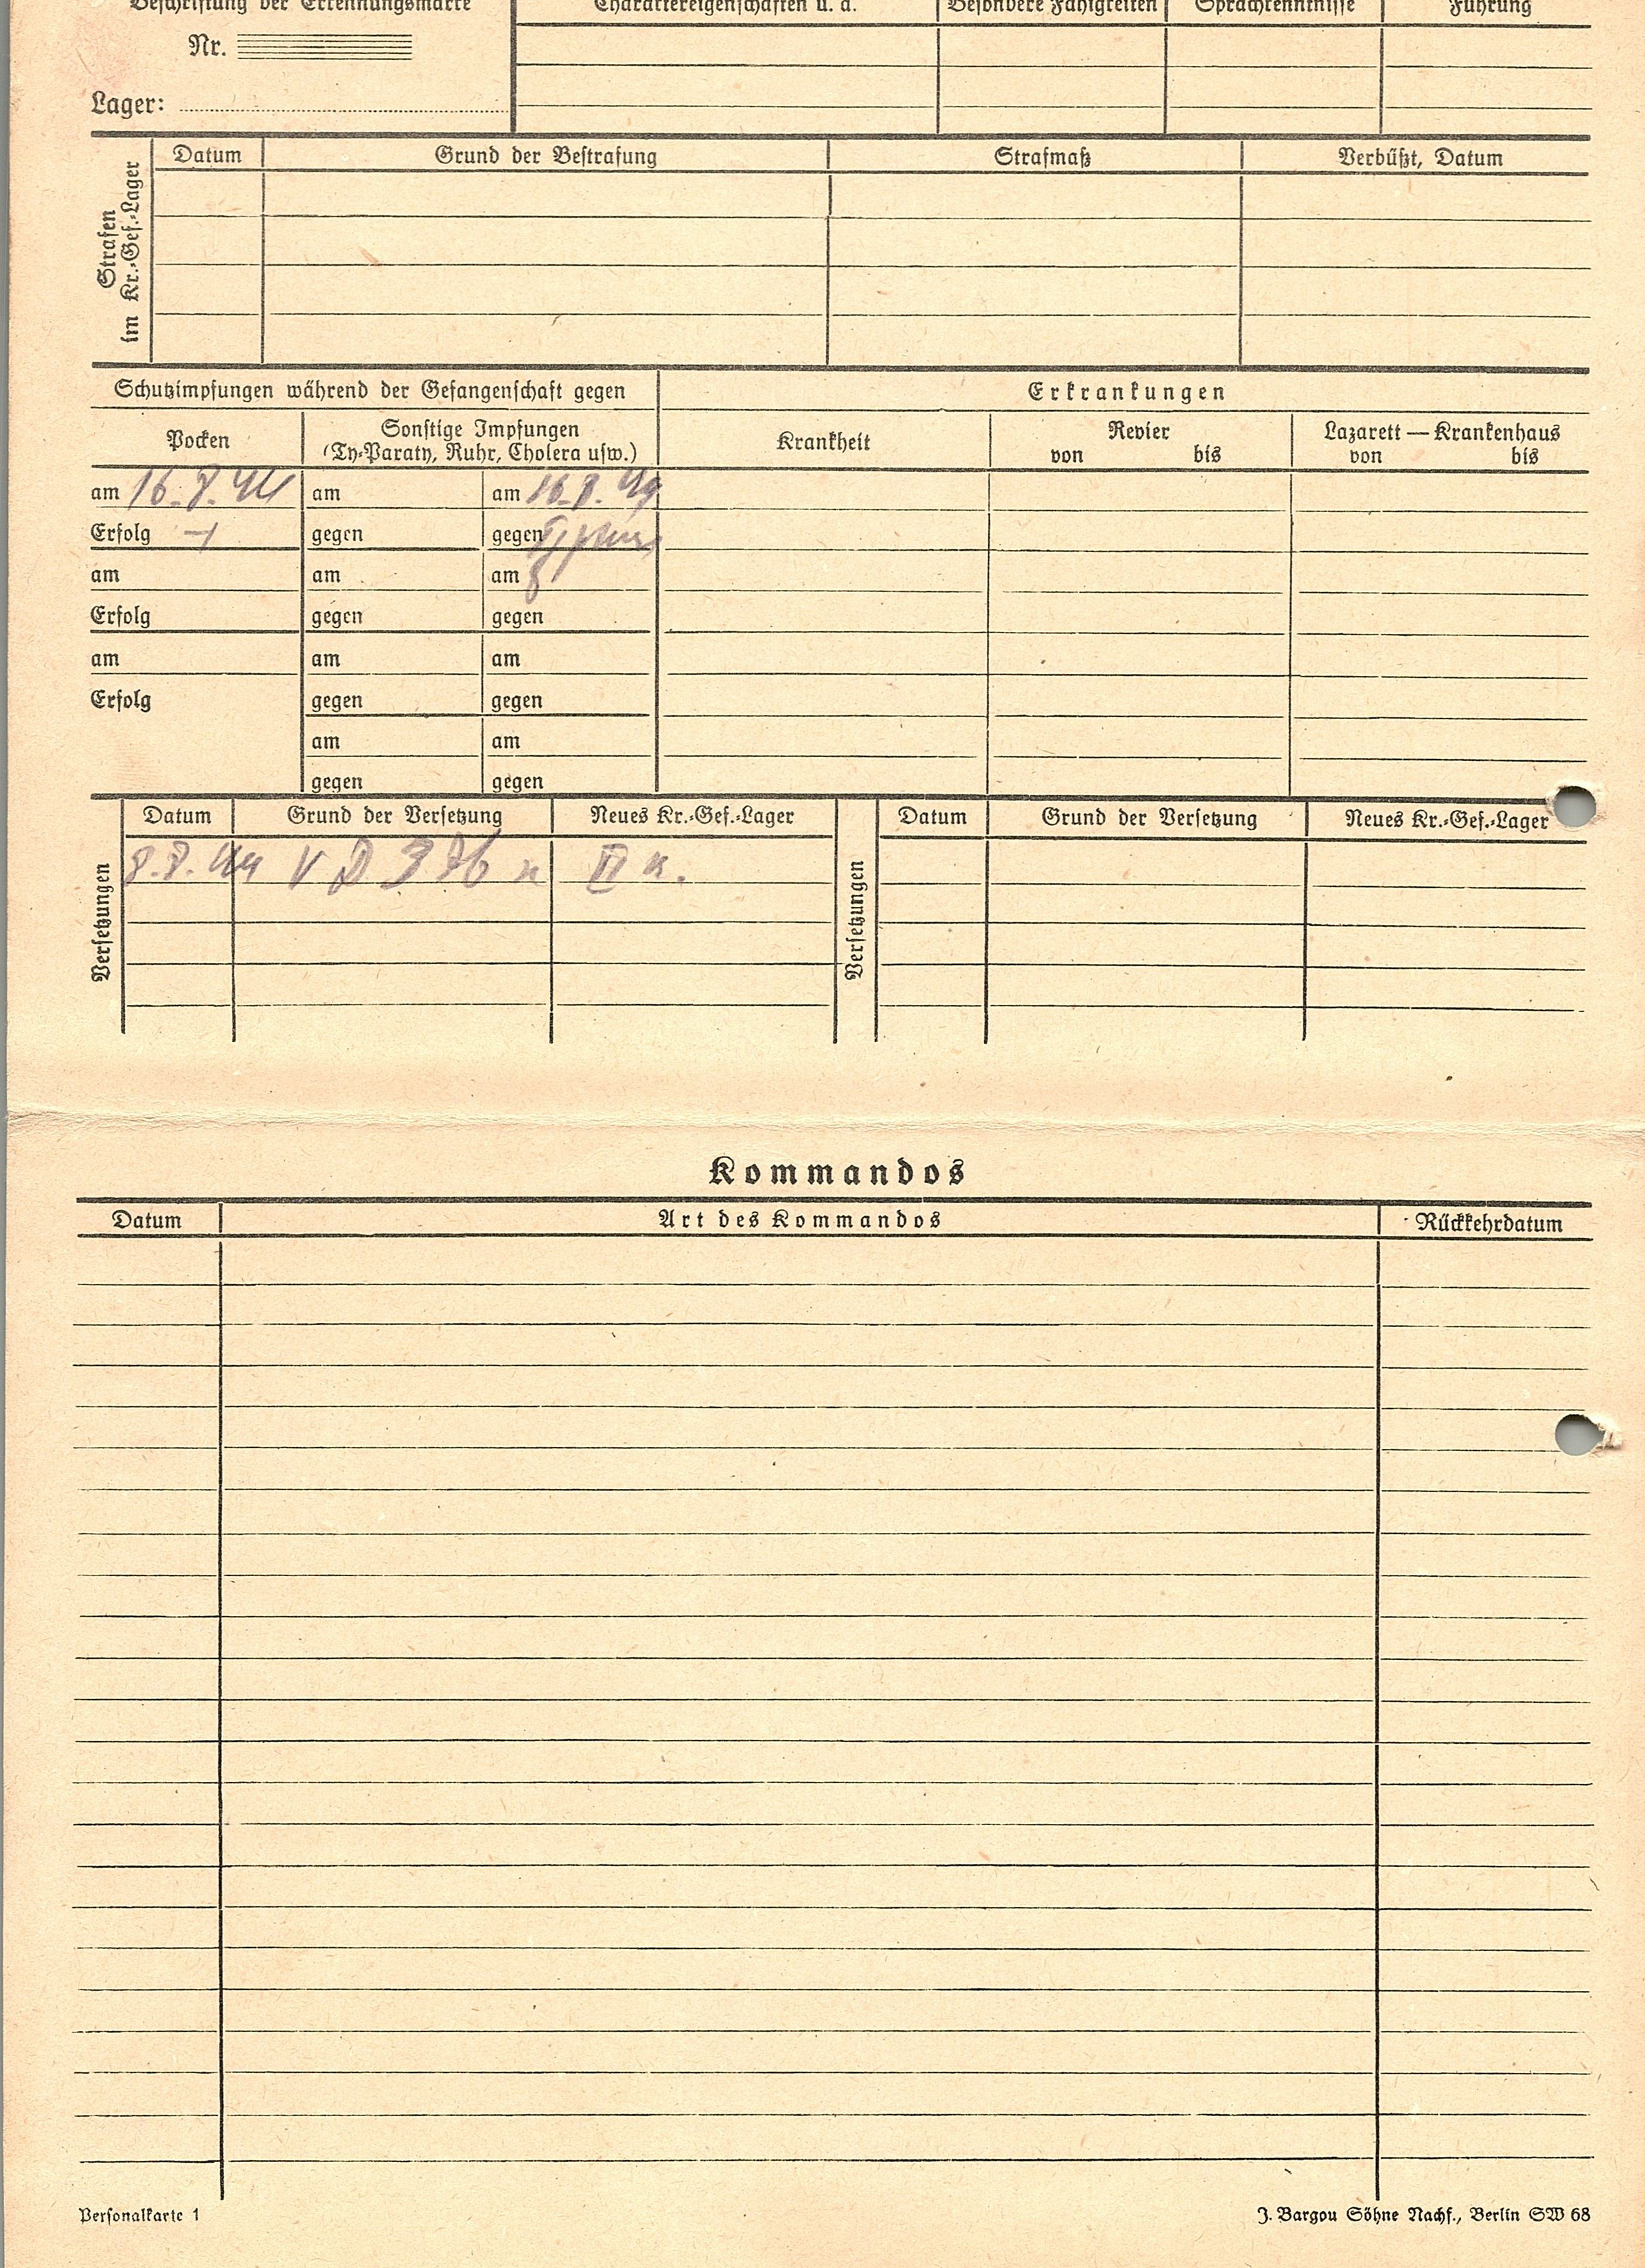 Beschriftung der Erkennungsmarke
Charaktereigenschaften u. a.
Besondere Fähigkeiten
Sprachkenntnisse
Führung
Nr.
Lager:
Strafen
im Kr.-Gef.-Lager
Datum
Grund der Bestrafung
Strafmaß
Verbüßt, Datum
Schutzimpfungen während der Gefangenschaft gegen
Erkrankungen
Pocken
Sonstige Impfungen
(Ty-Paraty, Ruhr, Cholera usw.)
Krankheit
Revier
von bis
Lazarett — Krankenhaus
von bis
am 16.8.44 am am 16.8.44
Erfolg + gegen gegen Typhus
am am am
Erfolg gegen gegen
am am am
Erfolg gegen gegen
am am
gegen gegen
Versetzungen
Datum Grund der Versetzung Neues Kr.-Gef.-Lager
8.8.44 V D 326 n II
Versetzungen
Datum Grund der Versetzung Neues Kr.-Gef.-Lager
Kommandos
Datum Art des Kommandos Rückkehrdatum
Personalkarte 1
J. Bargou Söhne Nachf., Berlin SW 68